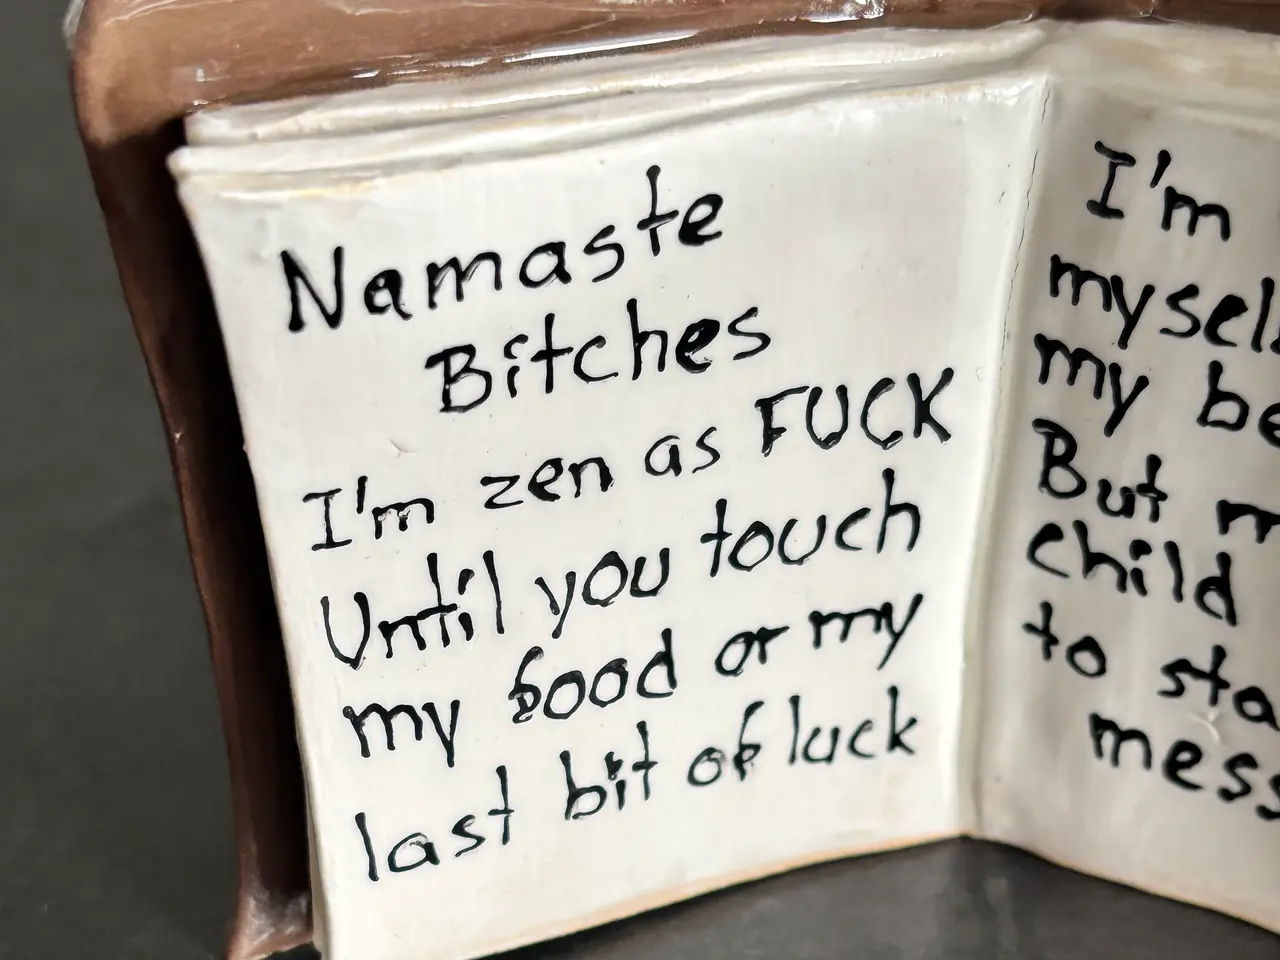 Namaste
Bitches
I'm zen as FUCK
Until you touch
my food or my
last bit of luck
I'm
my
But
child
to
mess